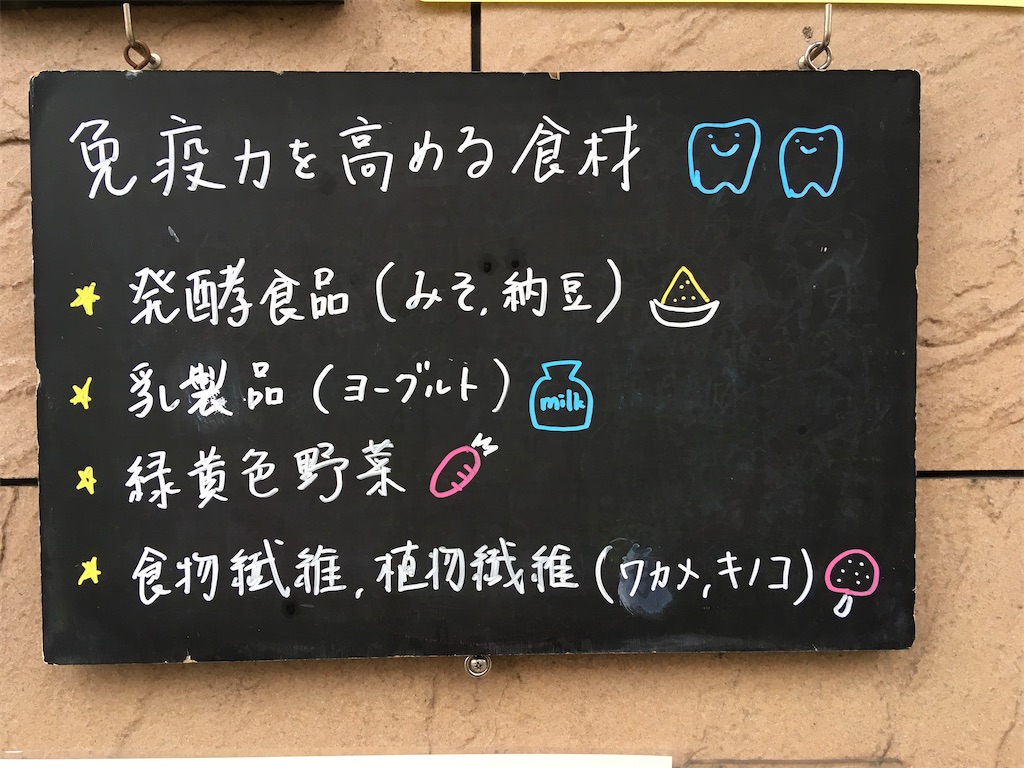 免疫力を高める食材
発酵食品(みそ,納豆)
乳製品(ヨーグルト)
milk
緑黄色野菜
食物繊維,植物繊維(ワカメ,キノコ)